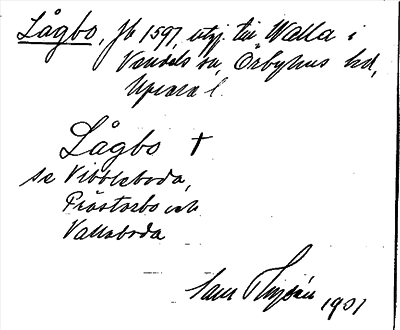 Lågbo, Jb 1597, utj. till Walla i
Vendels sn, Örbyhus hd,
Upsala l.
Lågbo †
se Vibbleboda,
Prästorbo och
Vallaboda
1901